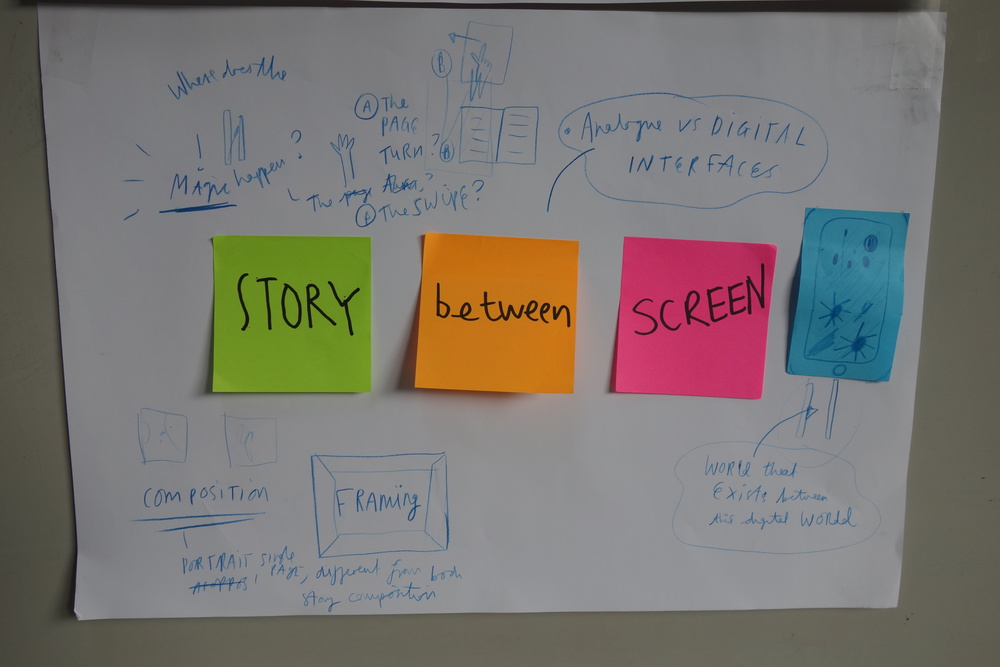 Where does the
Magic happen?
The page
A The
PAGE
TURN?
B
B
The SWIPE?
Analogue VS DIGITAL
INTERFACES
STORY
between
SCREEN
COMPOSITION
PORTRAIT single
PAGE, different from book
composition
FRAMING
WORLD that
EXISTS between
this digital WORLD